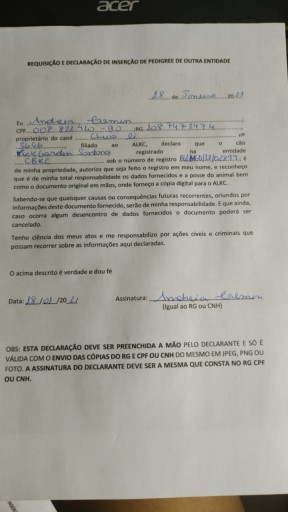 acer
REQUISIÇÃO E DECLARAÇÃO DE INSERÇÃO DE PEDIGREE DE OUTRA ENTIDADE
28 de Janeiro de 21
Eu Andreia
CPF RG
proprietário do canil nº
5646 filiado ao ALRC, declaro que o cão
registrado na entidade
CBKC sob o número de registro e
de minha propriedade, autorizo que seja feito o registro em meu nome, e reconheço
que é de minha total responsabilidade os dados fornecidos e a posse do animal bem
como o documento original em mãos, onde forneço a cópia digital para o ALRC.
Sabendo-se que quaisquer causas ou consequências futuras recorrentes, oriundos por
informações deste documento fornecido, serão de minha responsabilidade. E que ainda,
caso ocorra algum desencontro de dados fornecidos o documento poderá ser
cancelado.
Tenho ciência dos meus atos e me responsabilizo por ações cíveis e criminais que
possam recorrer sobre as informações aqui declaradas.
O acima descrito é verdade e dou fé
Data: 28/01/2021 Assinatura: Andreia
(Igual ao RG ou CNH)
OBS: ESTA DECLARAÇÃO DEVE SER PREENCHIDA A MÃO PELO DECLARANTE E SÓ É
VÁLIDA COM O ENVIO DAS CÓPIAS DO RG E CPF OU CNH DO MESMO EM JPEG, PNG OU
FOTO. A ASSINATURA DO DECLARANTE DEVE SER A MESMA QUE CONSTA NO RG CPF
OU CNH.